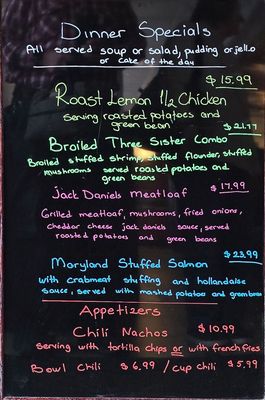 Dinner Specials
All served soup or salad, pudding or jello
or cake of the day
$15.99
Roast Lemon 1/2 Chicken
serving roasted potatoes and
green bean
$21.77
Broiled Three Sister Combo
Broiled stuffed shrimp, stuffed flounder, stuffed
mushrooms served roasted potatoes and
green beans
$17.99
Jack Daniels Meatloaf
Grilled meatloaf, mushrooms, fried onions,
cheddar cheese jack daniels sauce, served
roasted potatoes and green beans
$23.99
Maryland Stuffed Salmon
with crabmeat stuffing and hollandaise
sauce, served with mashed potato and greenbeans
Appetizers
Chili Nachos $10.99
serving with tortilla chips or with french fries
Bowl Chili $6.99 / cup chili $5.99